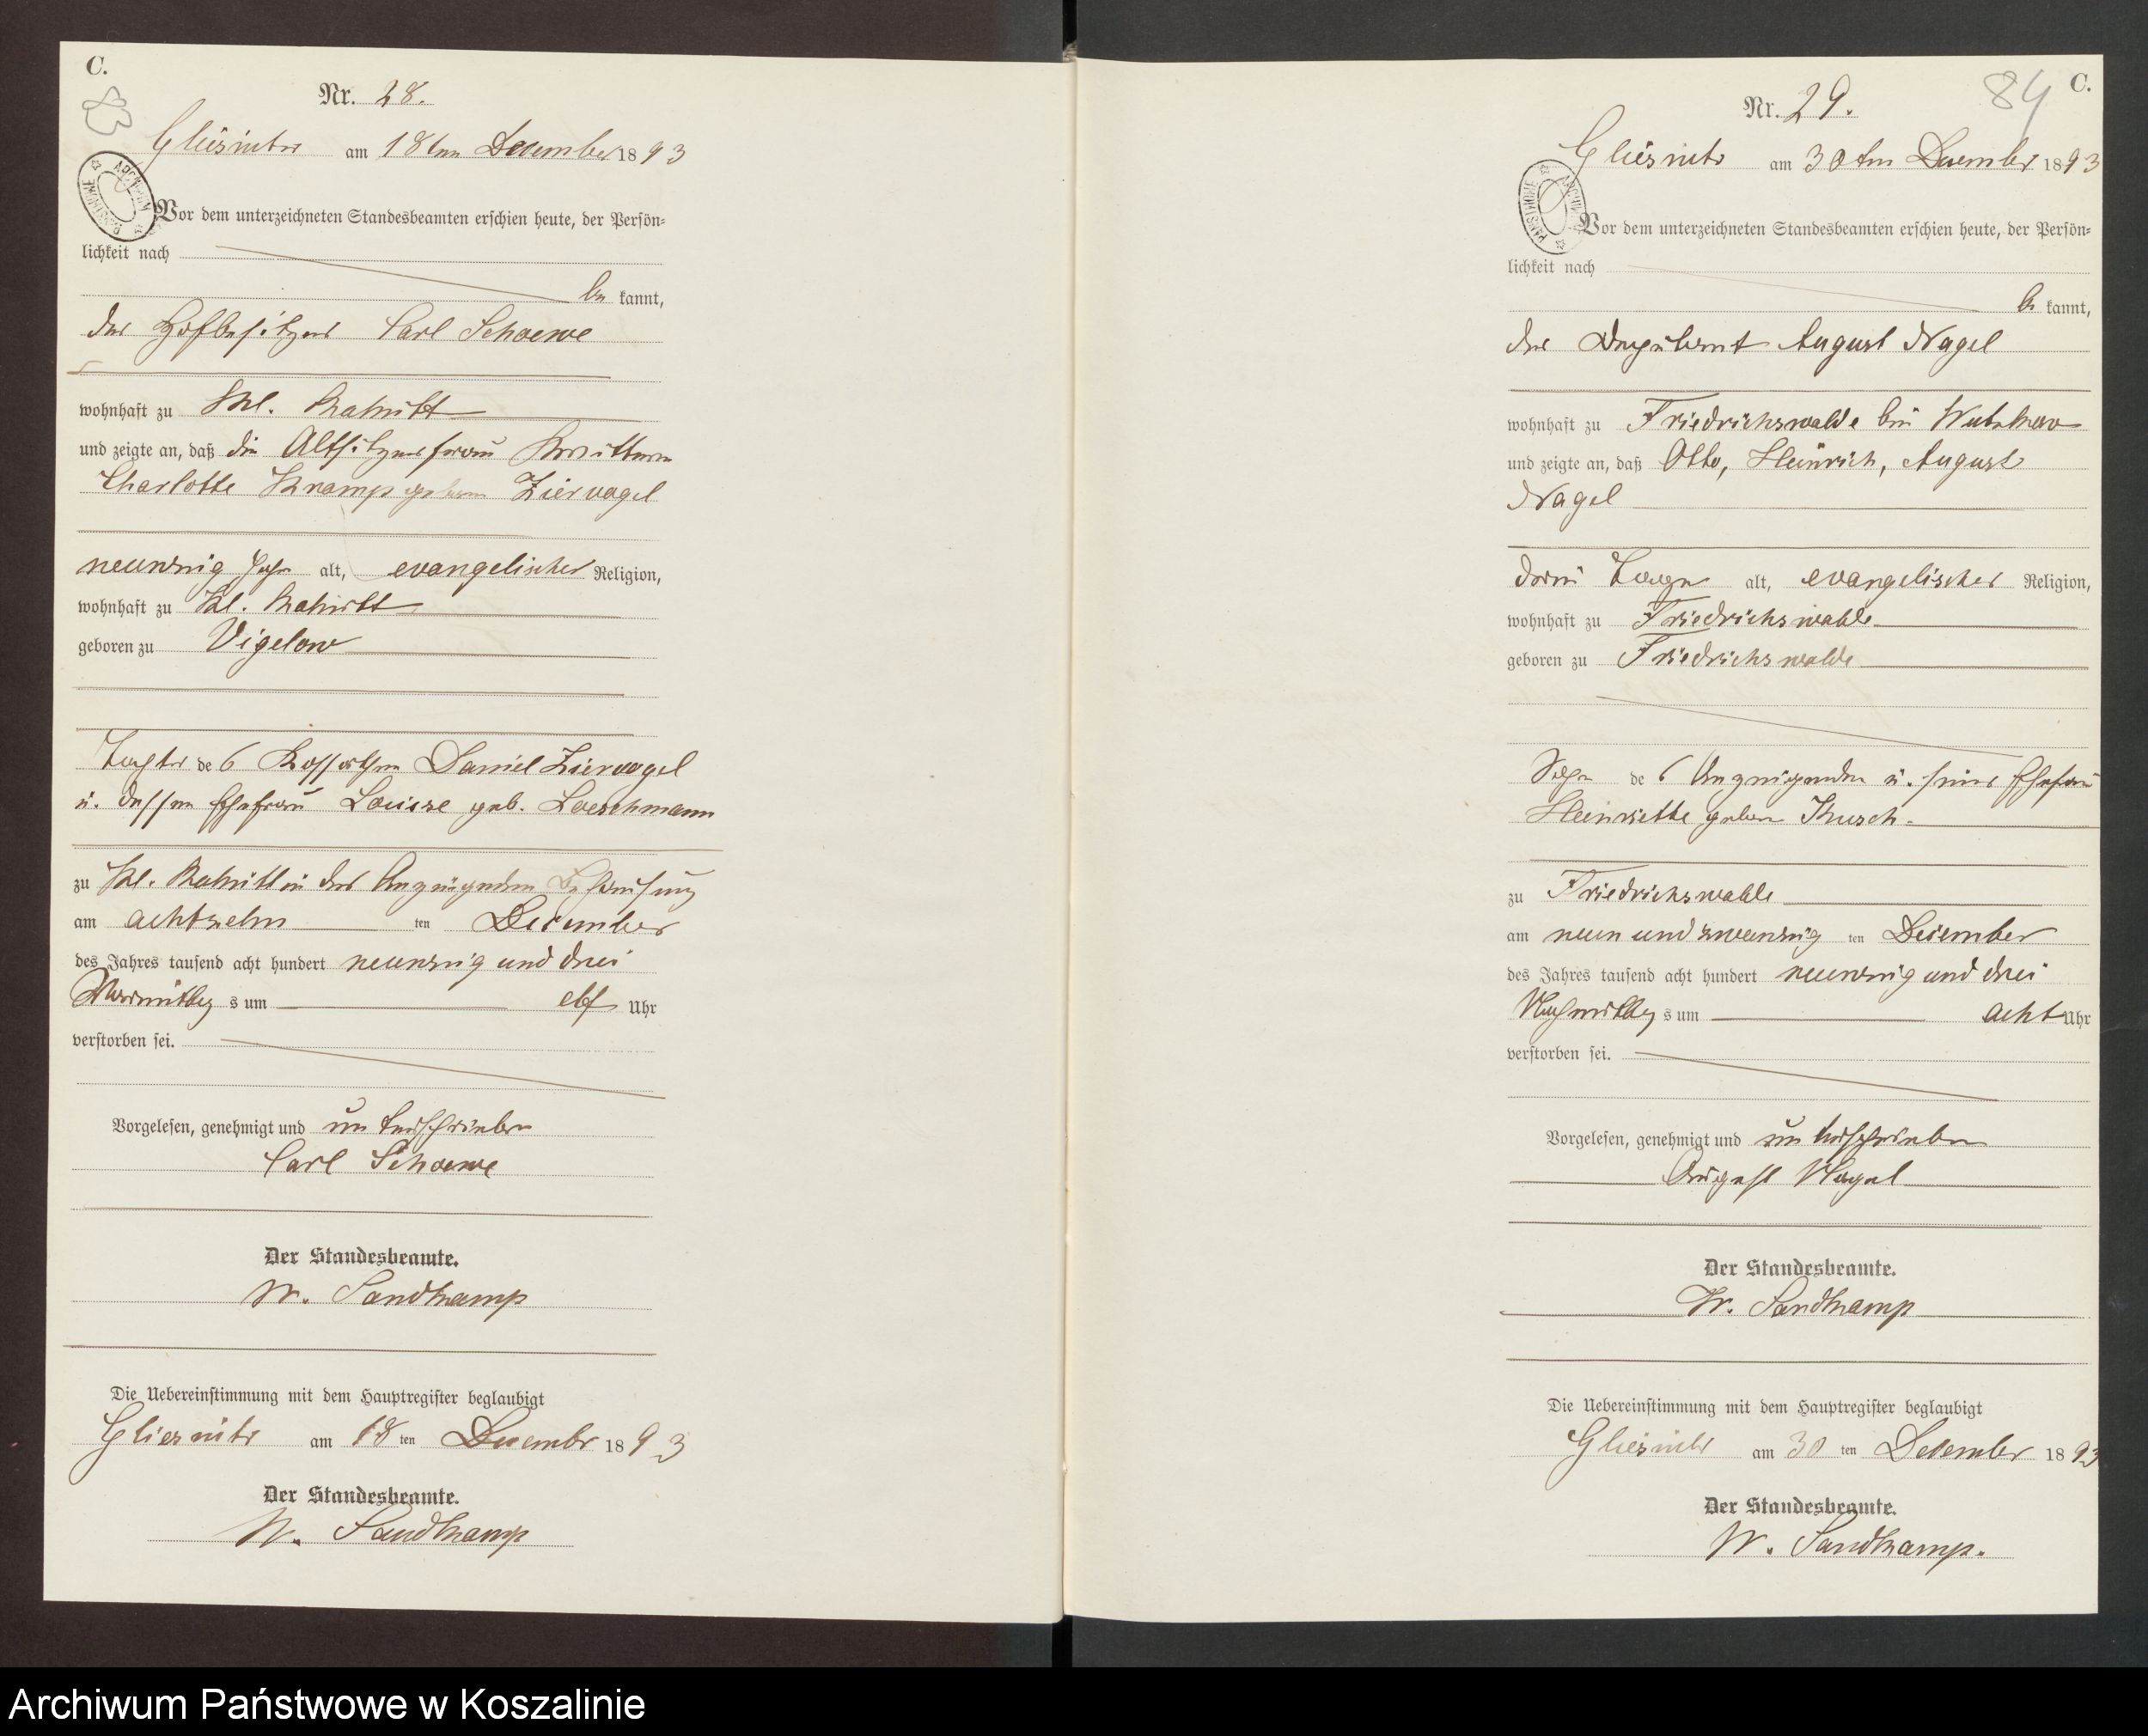 C.
83
Nr. 28.
Gliesnitz am 18ten December 1893
Vor dem unterzeichneten Standesbeamten erschien heute, der Persön=
lichkeit nach
be kannt,
der Hofbesitzer Carl Schoewe
wohnhaft zu Kl.
und zeigte an, daß die Altsitzerfrau Wittwe
Charlotte Kramp geboren Ziervogel
neunzig Jahr alt, evangelischer Religion,
wohnhaft zu Kl.
geboren zu Vigelow
Tochter des Kossathen Daniel Ziervogel
u. dessen Ehefrau Louise geb. Loeschmann
zu Kl. in des Anzeigenden Behausung
am achtzehn ten December
des Jahres tausend acht hundert neunzig und drei
Vormittags um elf Uhr
verstorben sei.
Vorgelesen, genehmigt und unterschrieben
Carl Schoewe
Der Standesbeamte.
W. Sandkamp
Die Uebereinstimmung mit dem Hauptregister beglaubigt
Gliesnitz am 18 ten December 1893
Der Standesbeamte.
W. Sandkamp
84 C.
Nr. 29.
Gliesnitz am 30ten December 1893
Vor dem unterzeichneten Standesbeamten erschien heute, der Persön=
lichkeit nach
be kannt,
der August Nagel
wohnhaft zu Friedrichswalde bei
und zeigte an, daß Otto, Heinrich, August
Nagel
drei Tage alt, evangelischer Religion,
wohnhaft zu Friedrichswalde
geboren zu Friedrichswalde
Sohn des Anzeigenden u. seiner Ehefrau
Henriette geboren Kusch.
zu Friedrichswalde
am neun und zwanzig ten December
des Jahres tausend acht hundert neunzig und drei
Nachmittags um acht Uhr
verstorben sei.
Vorgelesen, genehmigt und unterschrieben
August Nagel
Der Standesbeamte.
W. Sandkamp
Die Uebereinstimmung mit dem Hauptregister beglaubigt
Gliesnitz am 30 ten December 1893
Der Standesbeamte.
W. Sandkamp.
Archiwum Państwowe w Koszalinie